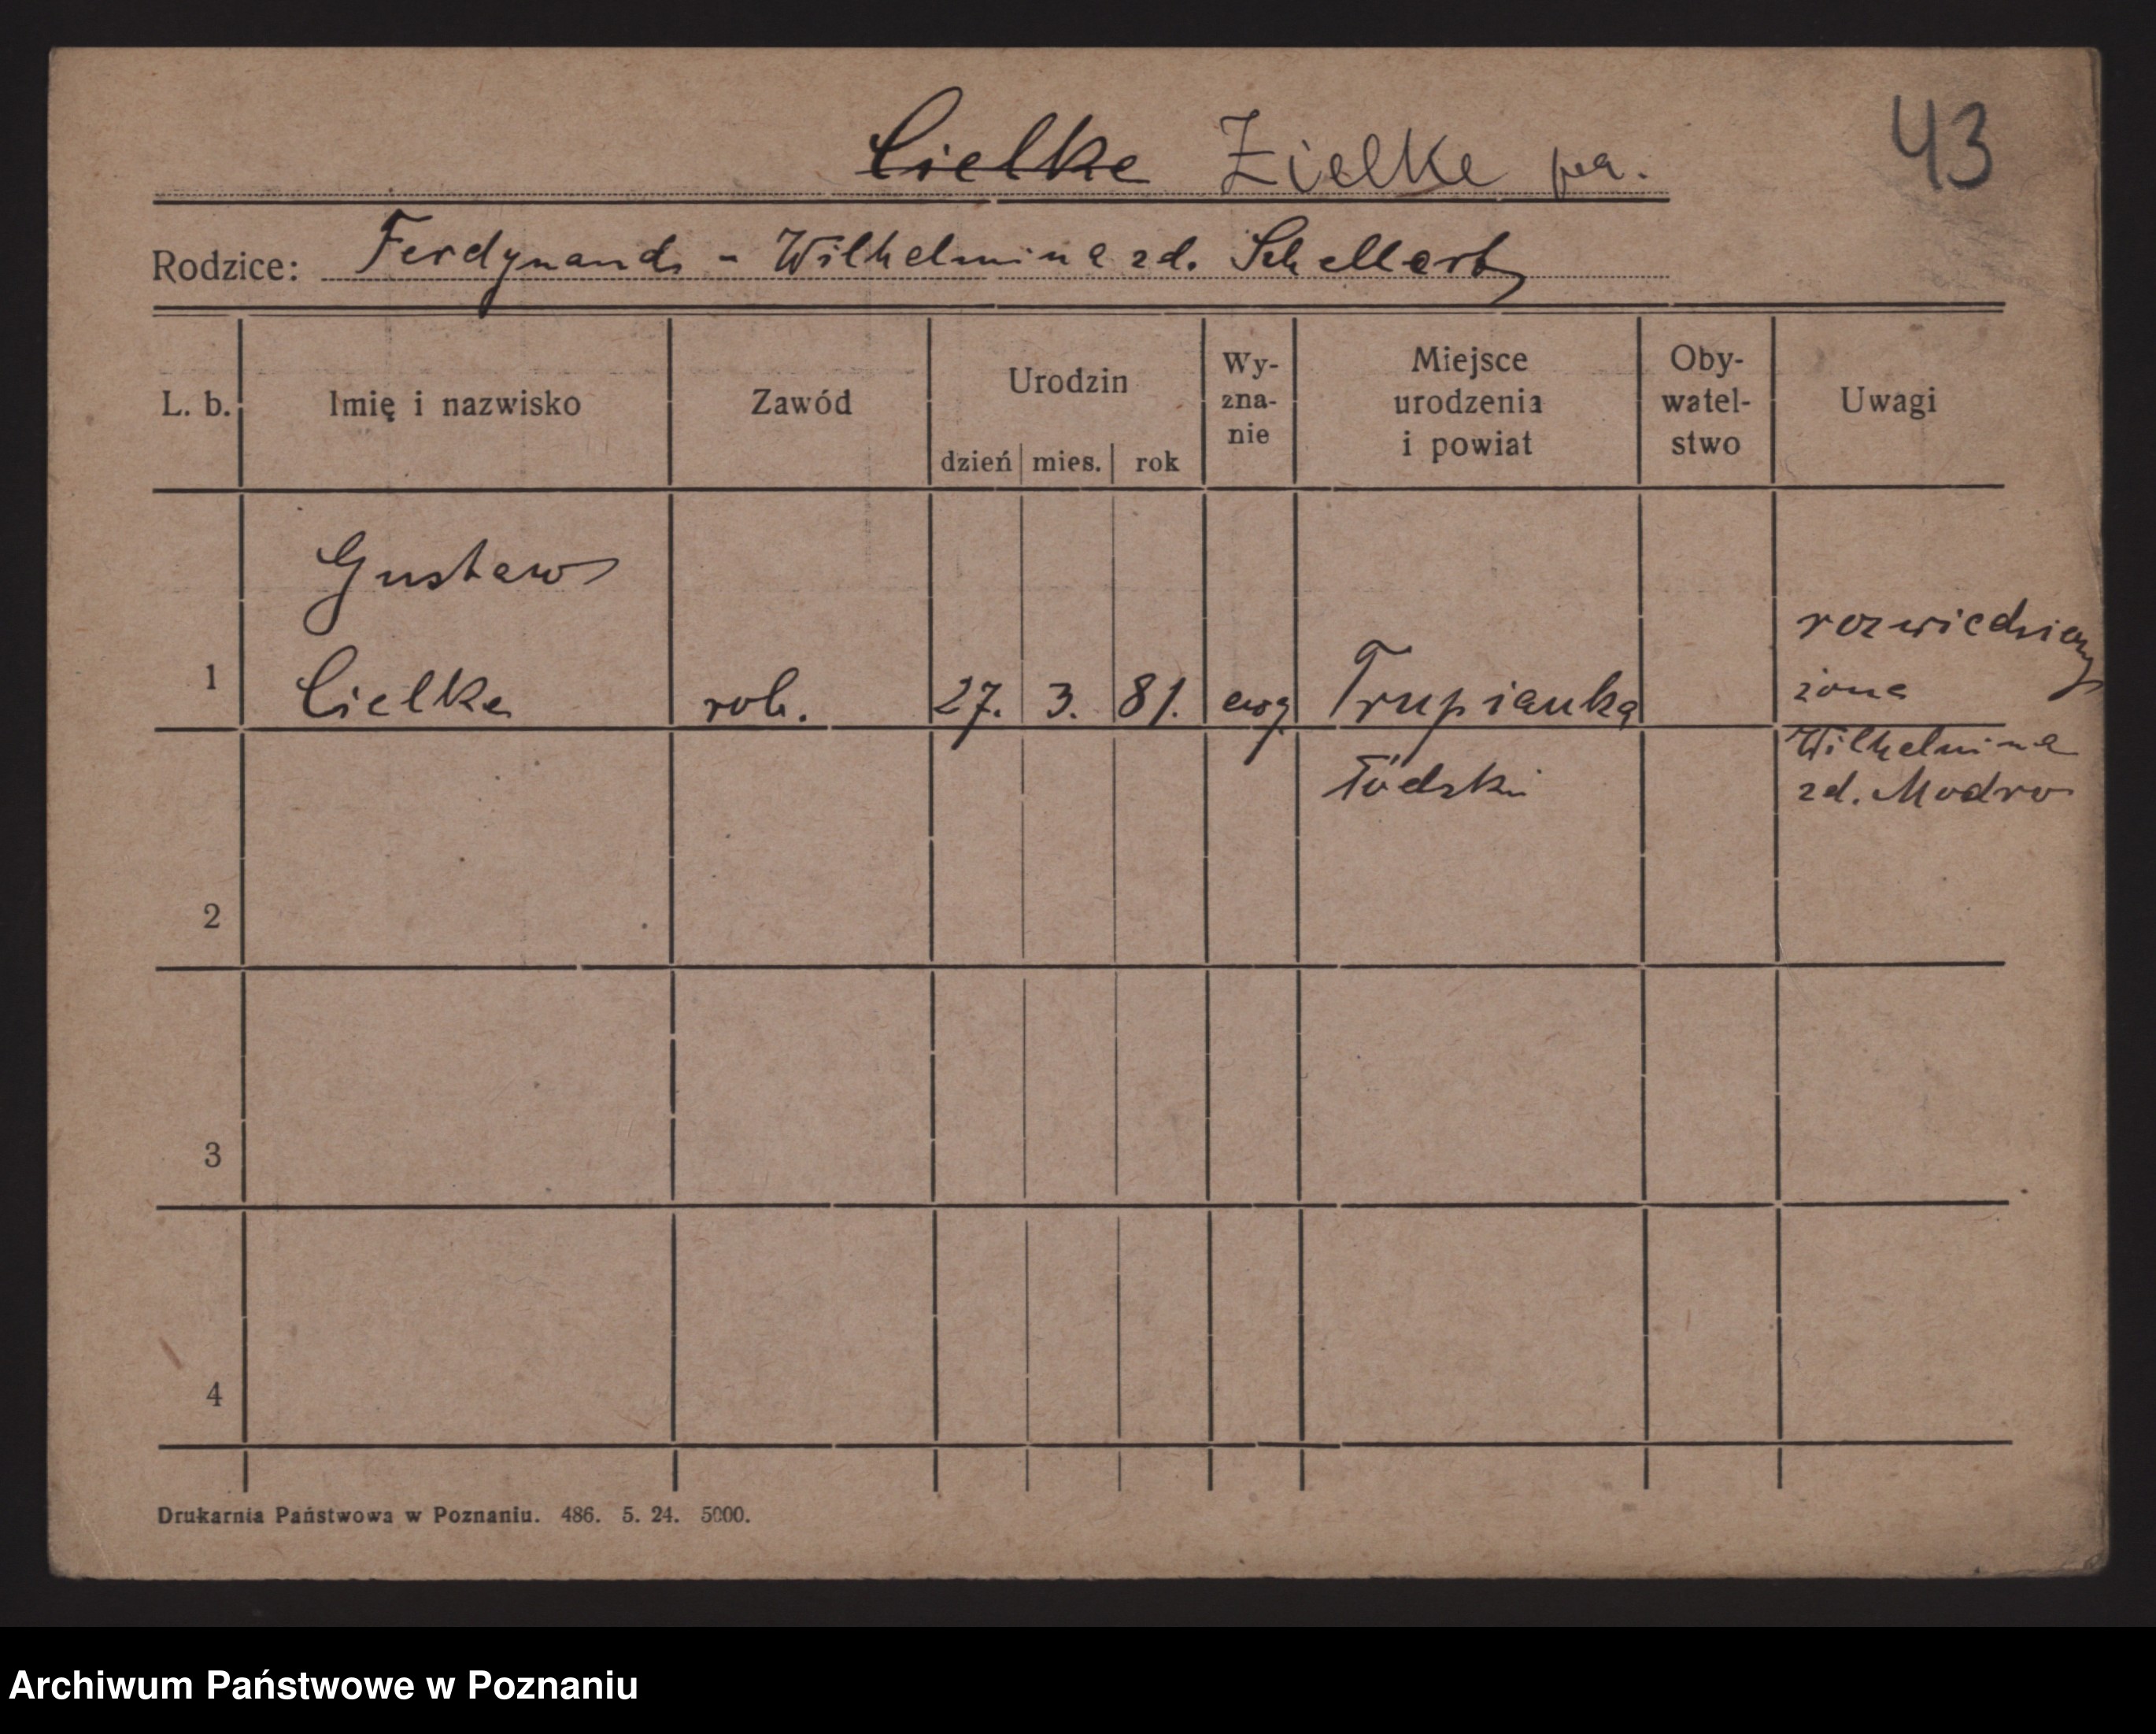 Cielke Zielke
43
Rodzice: Ferdynand - Wilhelmina zd. Schellert
L. b. Imię i nazwisko Zawód Urodzin dzień mies. rok Wy-zna-nie Miejsce urodzenia i powiat Oby-watel-stwo Uwagi
Gustaw
rozwiedziony
1 Cielke rob. 27. 3. 81. ewg Trupianka żona
Wilhelmina
łódzki zd. Modro
2
3
4
Drukarnia Państwowa w Poznaniu. 486. 5. 24. 5000.
Archiwum Państwowe w Poznaniu